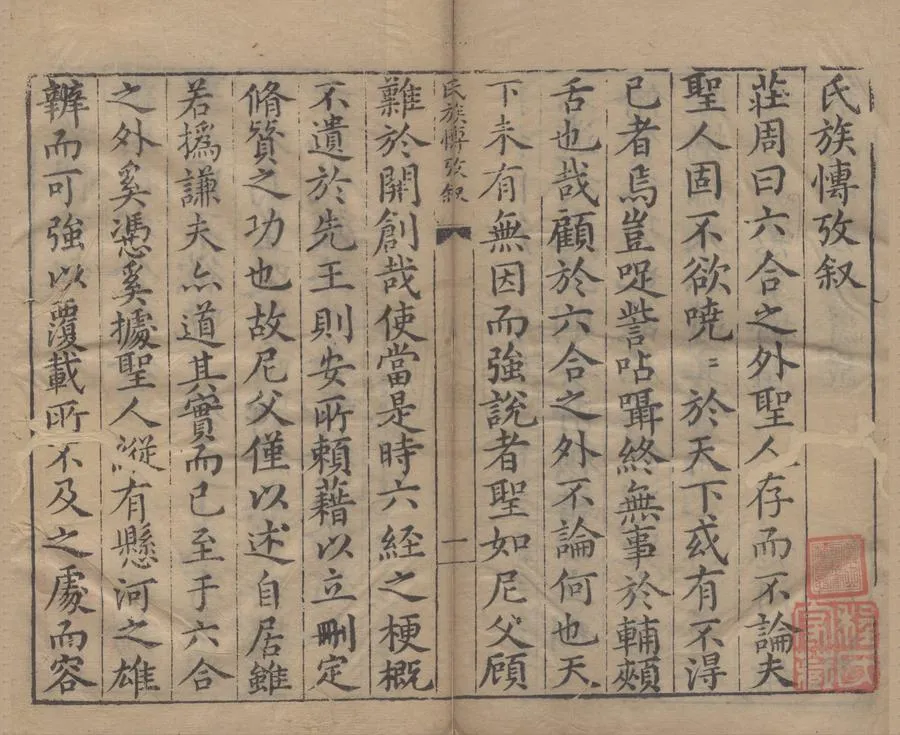 氏族愽攷叙
莊周曰六合之外聖人存而不論夫
聖人固不欲嘵〻於天下或有不得
已者焉豈哫訾呫躡終無事於輔頰
舌也哉顧於六合之外不論何也天
下未有無因而強說者聖如尼父顧
氏族愽攷叙 一
難於開創哉使當是時六經之梗概
不遺於先王則安所頼藉以立刪定
脩贊之功也故尼父僅以述自居雖
若撝謙夫亦道其實而已至于六合
之外奚憑奚據聖人縱有懸河之雄
辨而可強以覆載所不及之處而容